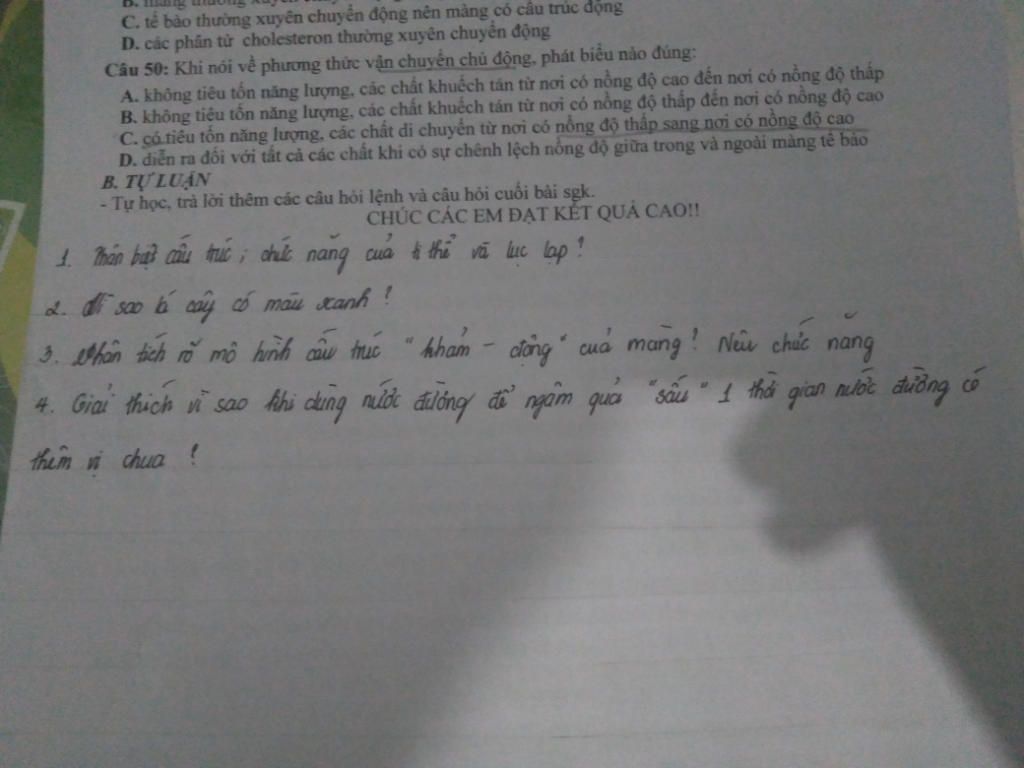 C. tế bào thường xuyên chuyển động nên màng có cấu trúc động
D. các phân tử cholesteron thường xuyên chuyển động
Câu 50: Khi nói về phương thức vận chuyển chủ động, phát biểu nào đúng:
A. không tiêu tốn năng lượng, các chất khuếch tán từ nơi có nồng độ cao đến nơi có nồng độ thấp
B. không tiêu tốn năng lượng, các chất khuếch tán từ nơi có nồng độ thấp đến nơi có nồng độ cao
C. có tiêu tốn năng lượng, các chất di chuyển từ nơi có nồng độ thấp sang nơi có nồng độ cao
D. diễn ra đối với tất cả các chất khi có sự chênh lệch nồng độ giữa trong và ngoài màng tế bào
B. TỰ LUẬN
- Tự học, trả lời thêm các câu hỏi lệnh và câu hỏi cuối bài sgk.
CHÚC CÁC EM ĐẠT KẾT QUẢ CAO!!
1. Phân biệt cấu trúc ; chức năng của ti thể và lục lạp ?
2. Vì sao lá cây có màu xanh ?
3. Phân tích rõ mô hình cấu trúc "khảm - động" của màng ? Nêu chức năng
4. Giải thích vì sao khi dùng nước đường để ngâm quả "sấu" 1 thời gian nước đường có
thêm vị chua ?